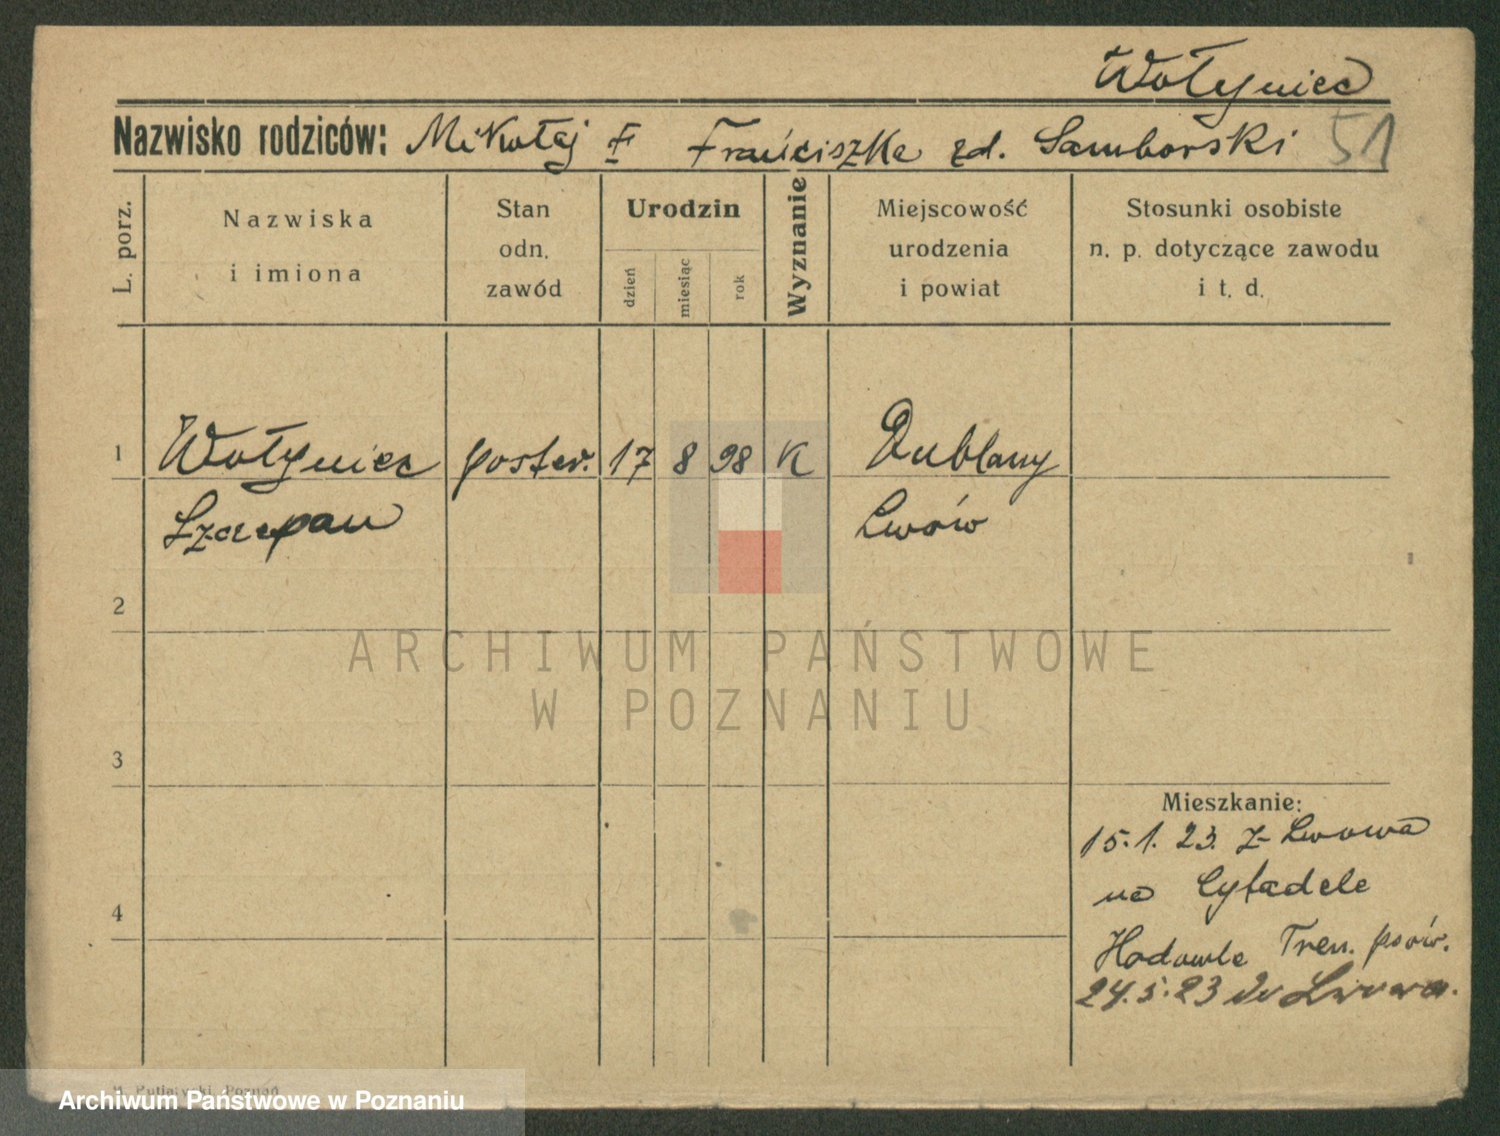 Wołyniec
Nazwisko rodziców: Mikołaj i Franciszka zd. Samborski 51
L. porz.
Nazwiska
i imiona
Stan
odn.
zawód
Urodzin
dzień
miesiąc
rok
Wyznanie
Miejscowość
urodzenia
i powiat
Stosunki osobiste
n. p. dotyczące zawodu
i t. d.
1 Wołyniec poster. 17 8 98 K Dublany
Szczepan Lwów
2
ARCHIWUM PAŃSTWOWE
W POZNANIU
3
Mieszkanie:
15.1.23. z Lwowa
na Cytadele
4
Hodowle Tren. psów.
24.5.23 do Lwowa.
Poznań
Archiwum Państwowe w Poznaniu